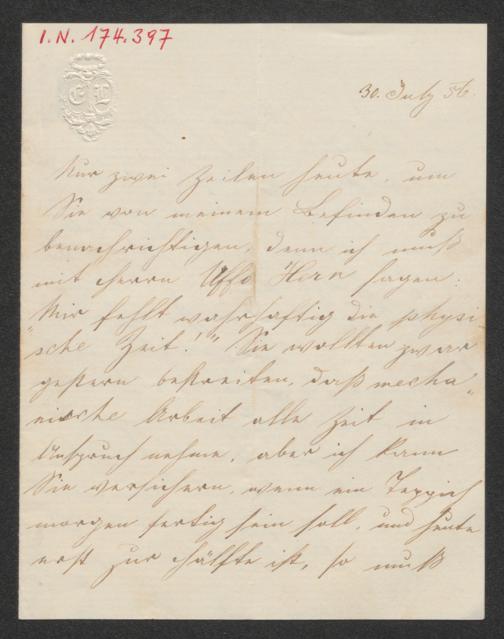 I.N. 174.397
30. July 56.
Nur zwei Zeilen heute, um
Sie von meinem Befinden zu
benachrichtigen, denn ich muß
mit Herrn Uffo Horn sagen:
"Mir fehlt wahrhaftig die physi
sche Zeit!" Sie wollten zwar
gestern bestreiten, daß mecha
nische Arbeit alle Zeit in
Anspruch nehme, aber ich kann
Sie versichern, wenn ein Teppich
morgen fertig sein soll, und heute
erst zur Hälfte ist, so muß